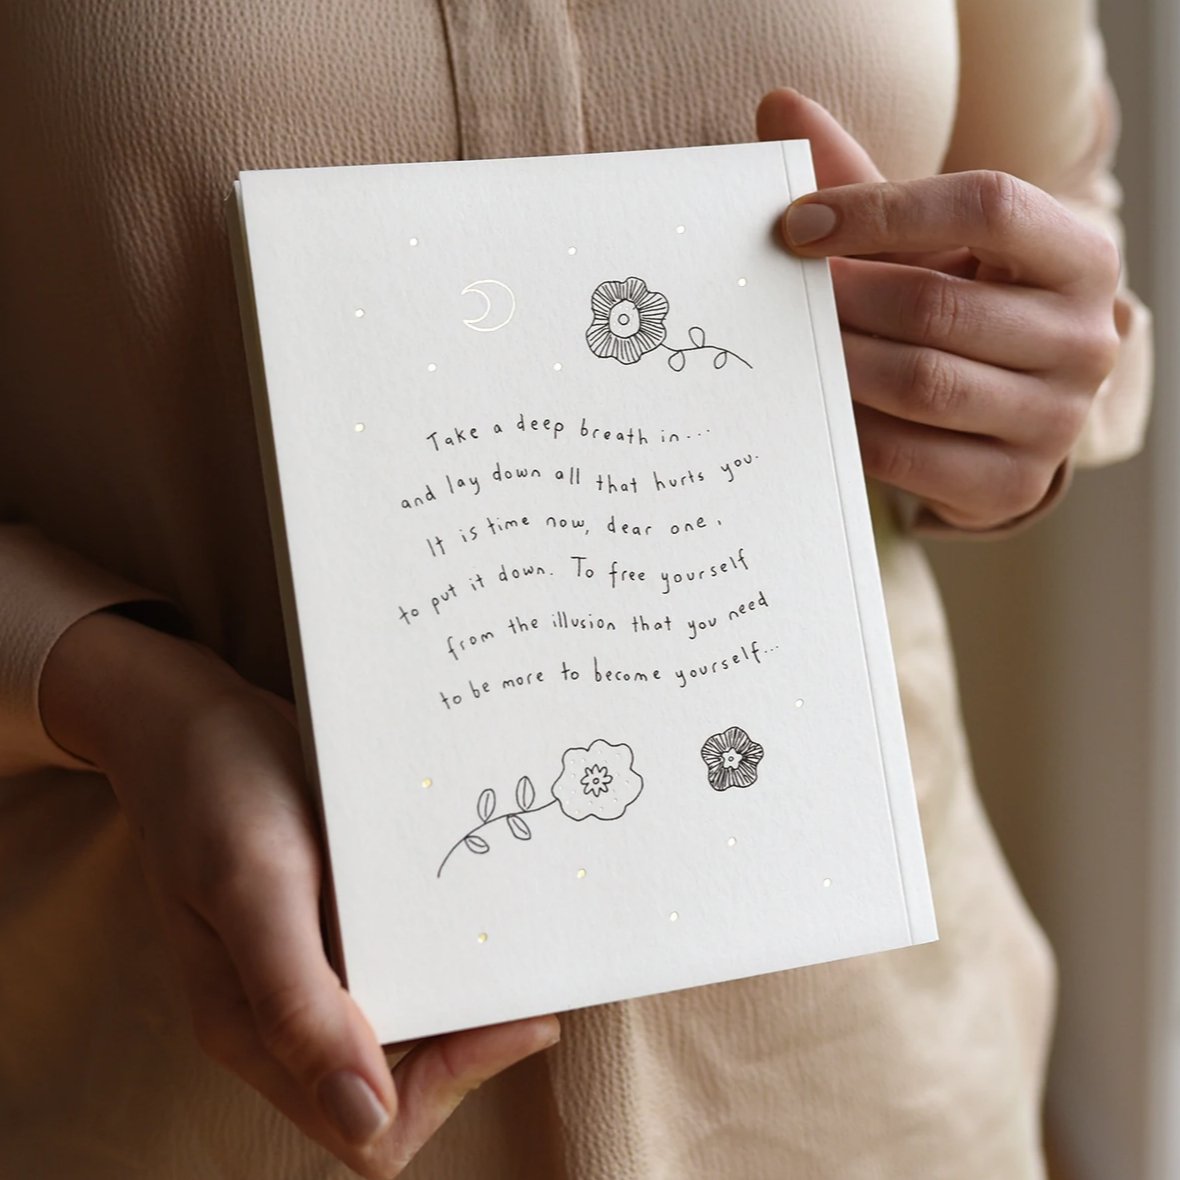 Take a deep breath in...
and lay down all that hurts you.
It is time now, dear one,
to put it down. To free yourself
from the illusion that you need
to be more to become yourself...